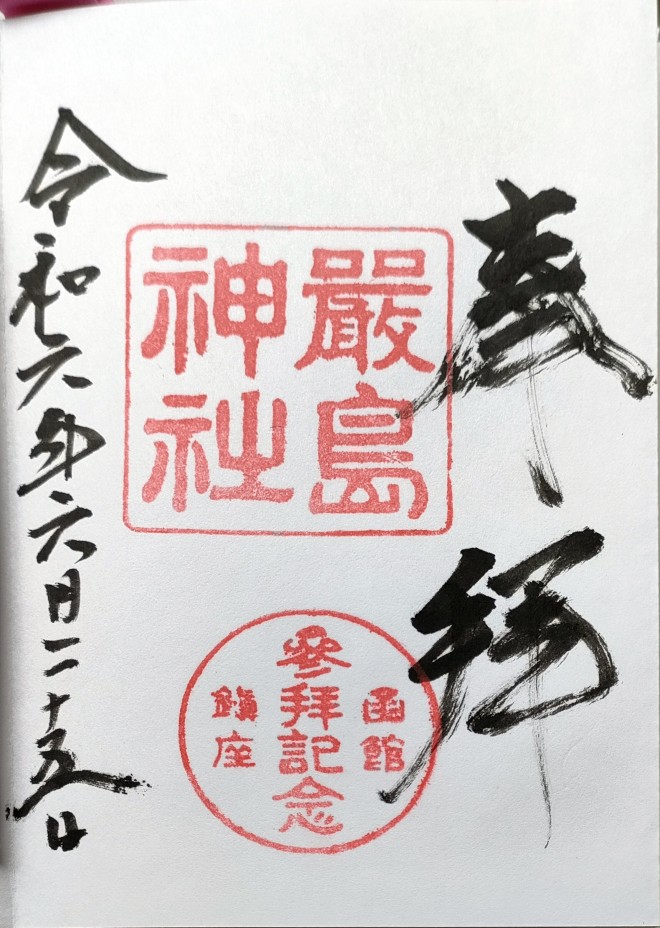 奉拝
嚴島
神社
函館
參拜記念
鎮座
令和六年六月二十五日